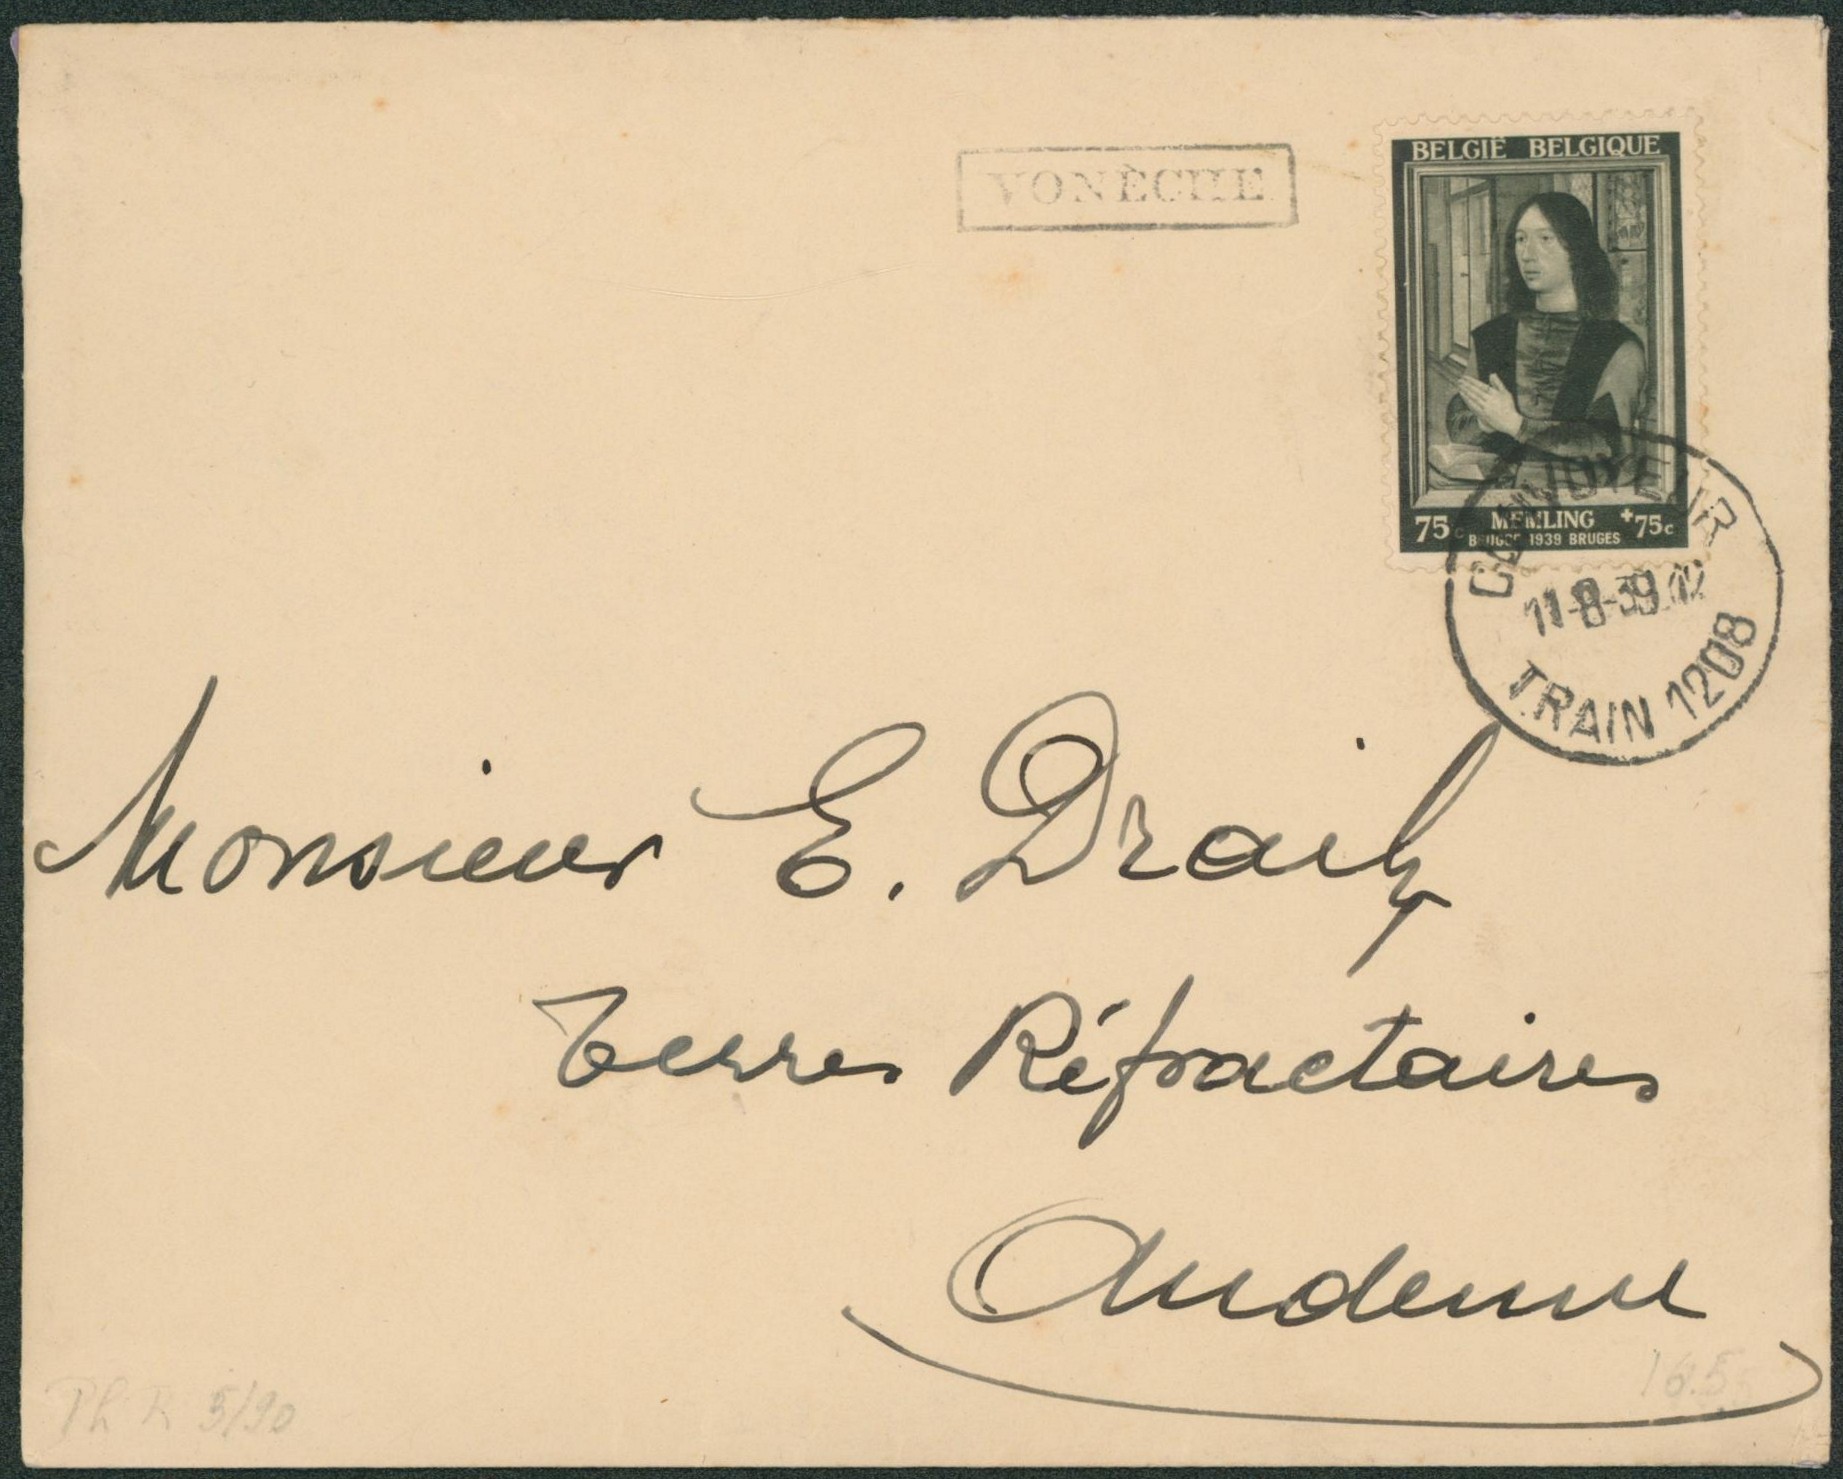 VONÈCHE
BELGIË BELGIQUE
75c MEMLING +75c
BRUGGE 1939 BRUGES
CONVOYEUR
11-8-39 12
TRAIN 1208
Monsieur E. Draily
Terres Réfractaires
Andenne
16.5
Ph R 5/90